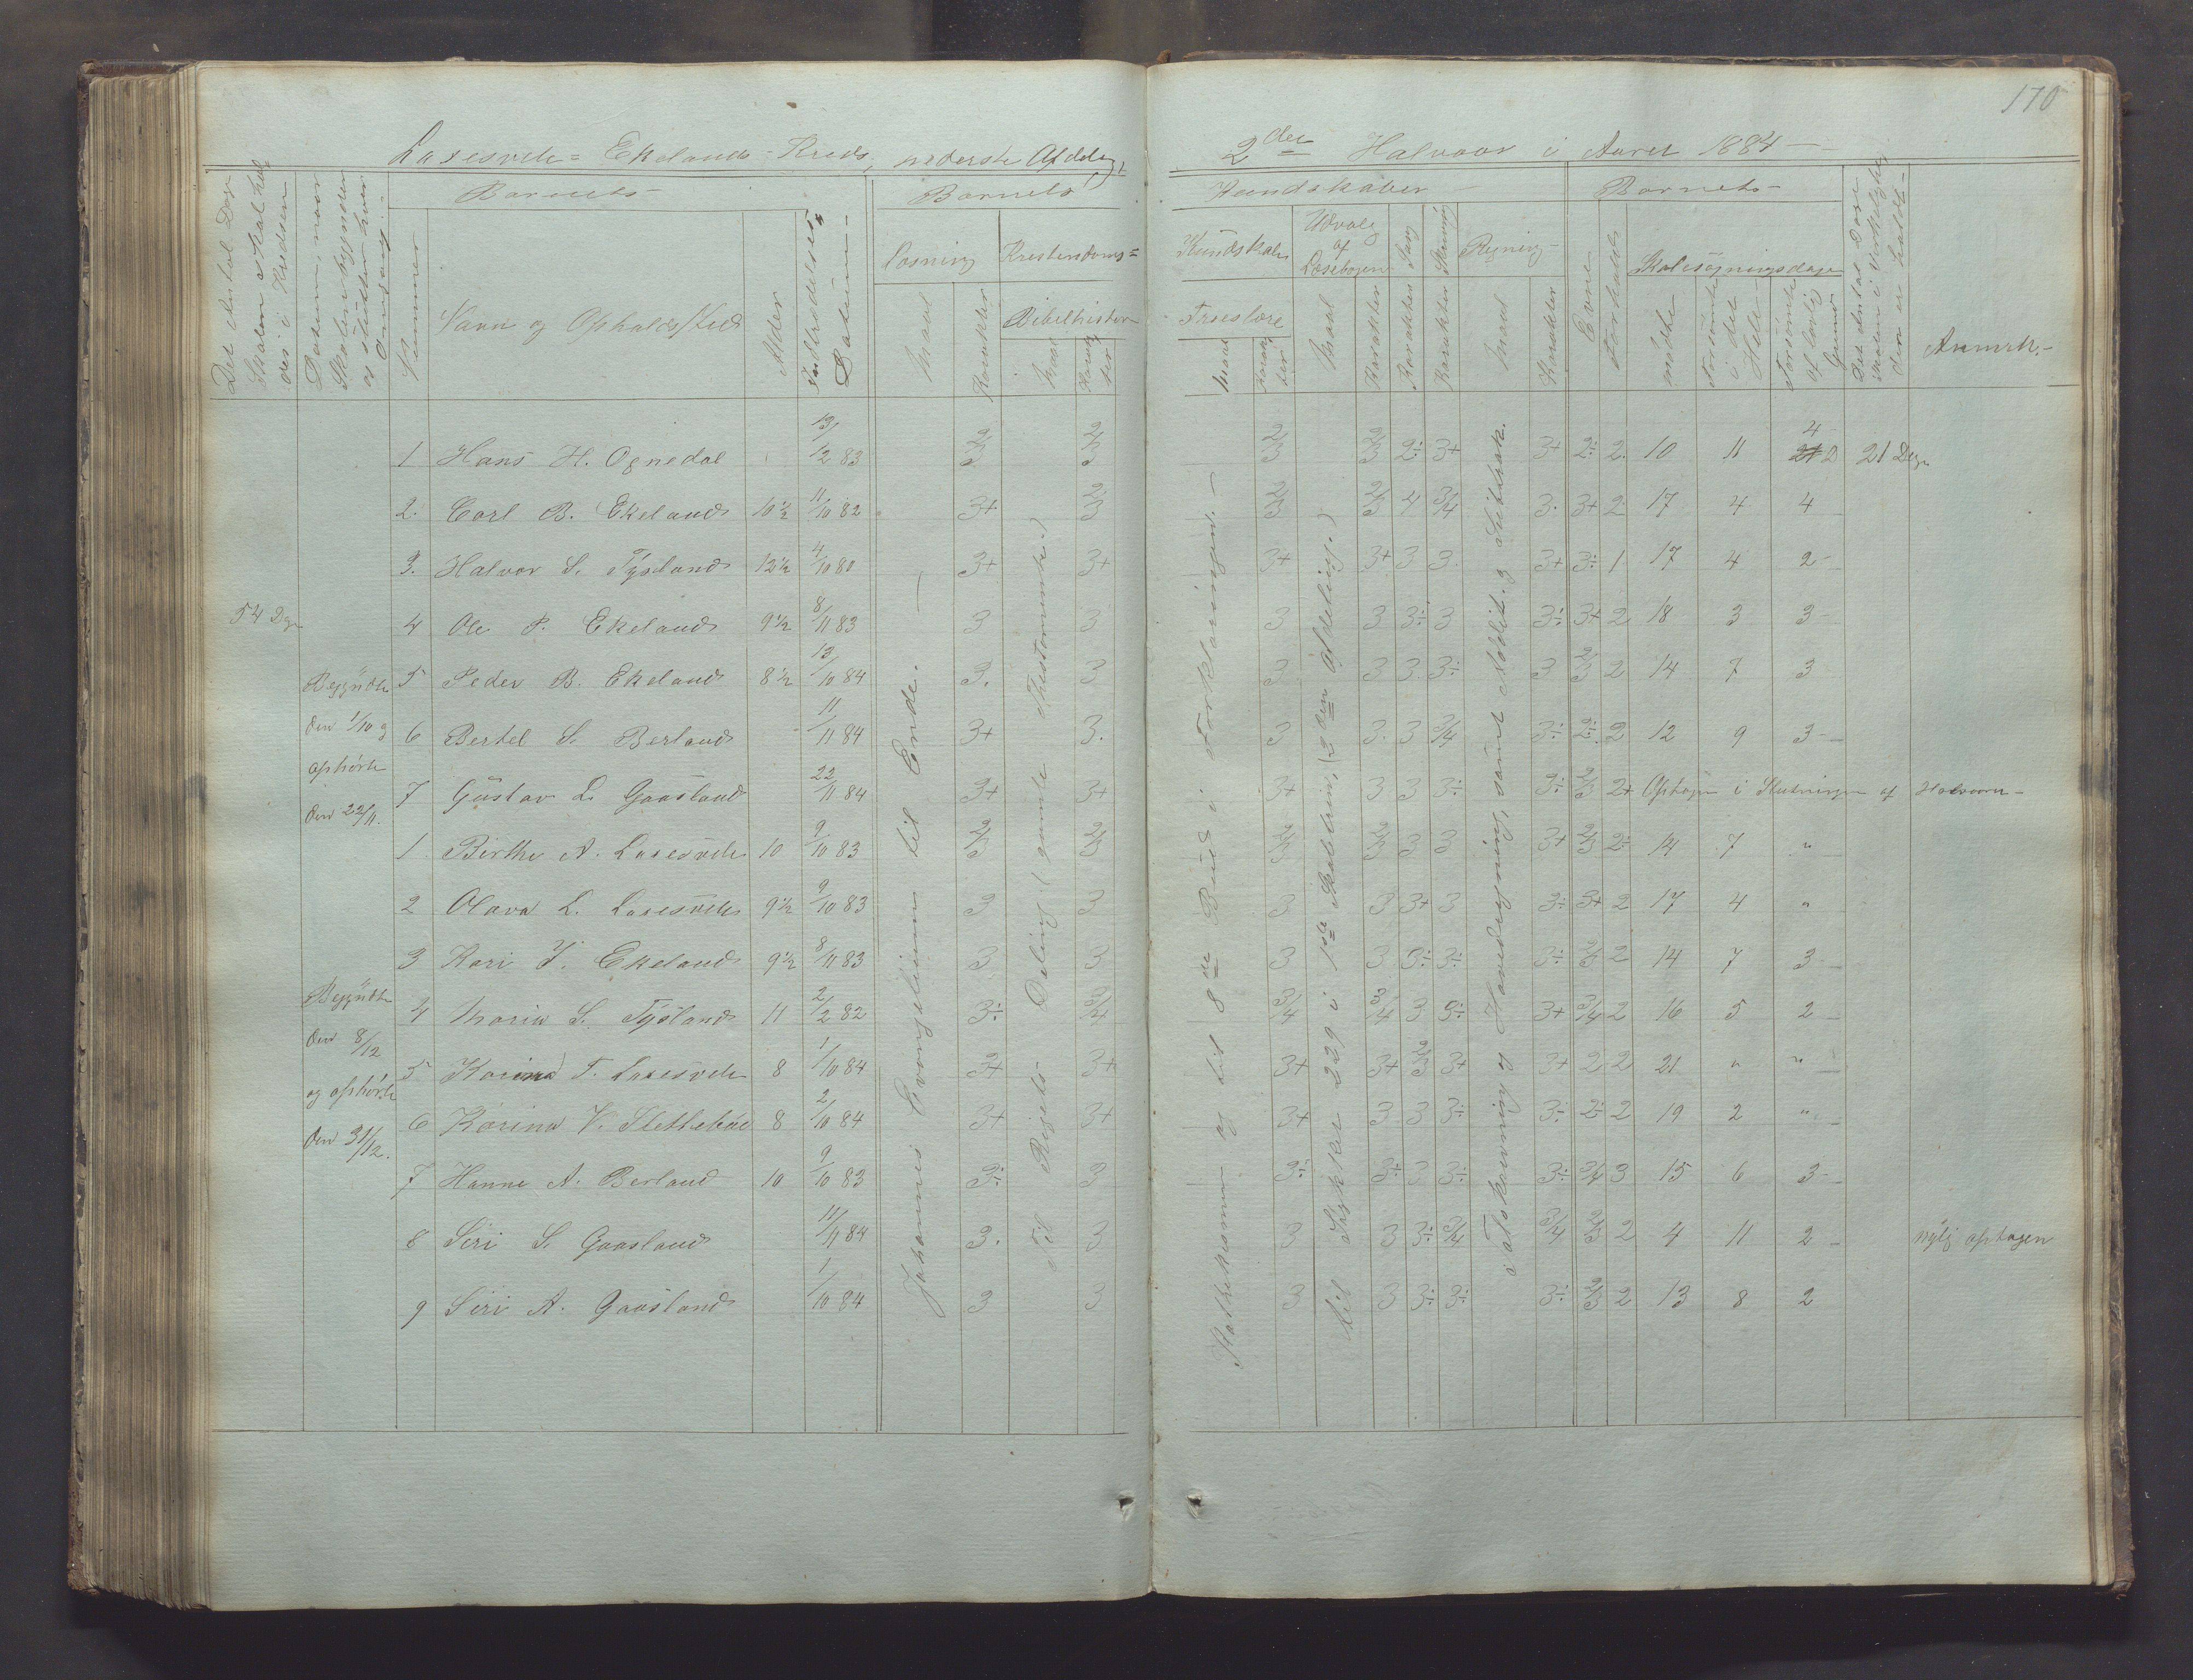 170
Laxesvele = Ekelands Kreds, nederste Afdeling,
2den Halvaar i Aaret 1884
Det Antal Dage Skolen skal holdes i Kredsen
Datum, naar Skolen begynder og slutter hver Omgang
Barnets
Nummer
Navn og Opholdssted
Alder
Indtrædelses= Datum
Barnets
Kundskaber
Læsning
Kristendoms=
Kundskab
Bibelhistorie
Troeslære
Udvalg af Læsebogen
Sang
Skrivning
Regning
Maal
Karakter
Maal
Karakter
Maal
Karakter
Maal
Karakter
Karakter
Karakter
Maal
Karakter
Barnets
Evne
Forhold
Skolesøgningsdage
mødte
forsømte i det Hele
forsømte af lovlig Grund
Det Antal Dage Skolen i Virkeligheden er holdt
Anmrk.
54 Dge
Begyndte den 1/10 og ophørte den 22/11.
Begyndte den 8/12 og ophørte den 31/12.
Johannes Evangelium til Ende.
Til Rigets Deling (gamle Thestamente.)
Stattekismen og til 8de Bud i Forklaringen.
til Stykket 229 i 1ste Skoletrin, (3den Afdeling.)
Talskrivning og Hovedregning, samt Addit. og Subtrak.
1 Hans H. Ognedal 13/12 83 2/3 2/3 2/3 2/3 2÷ 3+ 3+ 2÷ 2. 10 11 4 21 D 21 Dge
2. Carl B. Ekeland 10½ 11/10 82 3+ 2/3 2/3 2/3 4 3/4 3. 3+ 2 17 4 4
3. Halvor S. Tysland 12½ 4/10 80 3+ 3+ 3+ 3+ 3 3. 3+ 3÷ 1 17 4 2
4 Ole P. Ekeland 9½ 8/11 83 3 3 3 3 3÷ 3 3÷ 3+ 2 18 3 3
5 Peder B. Ekeland 8½ 13/10 84 3. 3 3 3 3 3÷ 3 2/3 2 14 7 3
6 Bertel S. Berland 11/11 84 3+ 3. 3 3 3 3/4 3÷ 2÷ 2 12 9 3
7 Gustav L. Gaasland 22/11 84 3+ 3+ 3+ 3 3 3÷ 3÷ 2/3 2+ Optagen i Slutningen af Halvaaret
1 Birthe A. Laxesvele 10 9/10 83 2/3 2/3 2/3 2/3 3 3 3+ 2/3 2÷ 14 7 "
2 Olava L. Laxesvele 9½ 9/10 83 3 3 3 3 3+ 3 3÷ 3+ 2 17 4 "
3 Kari J. Ekeland 9½ 8/11 83 3 3 3 3 3÷ 3÷ 3÷ 2/3 2 14 7 3
4 Maria S. Tysland 11 2/2 82 3÷ 3/4 3/4 3/4 3 3÷ 3+ 3/4 2 16 5 2
5 Karina T. Laxesvele 8 1/10 84 3+ 3+ 3+ 3+ 2/3 3+ 3+ 2 2 21 " "
6 Karina V. Slettebøe 8 2/10 84 3+ 3+ 3+ 3 3 3÷ 3÷ 2÷ 2 19 2 "
7 Hanne A. Berland 10 9/10 83 3÷ 3 3÷ 3+ 3 3÷ 3÷ 3/4 3 15 6 3
8 Siri S. Gaasland 11/11 84 3. 3 3 3 3÷ 3/4 3/4 2/3 2 4 11 2 nylig optagen
9 Siri A. Gaasland 1/10 84 3 3 3 3 3÷ 3÷ 3÷ 2/3 2 13 8 2